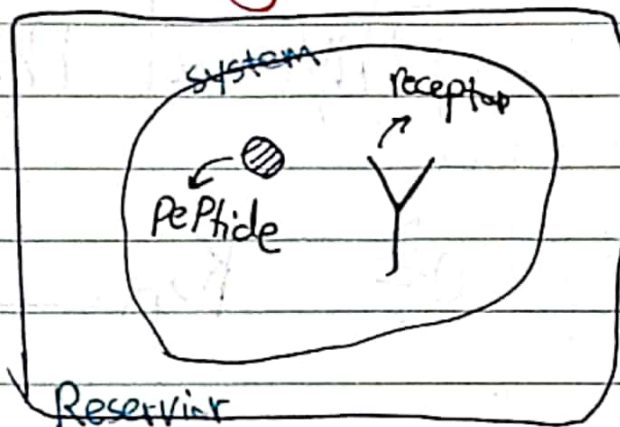 system
receptor
Peptide
Reservior